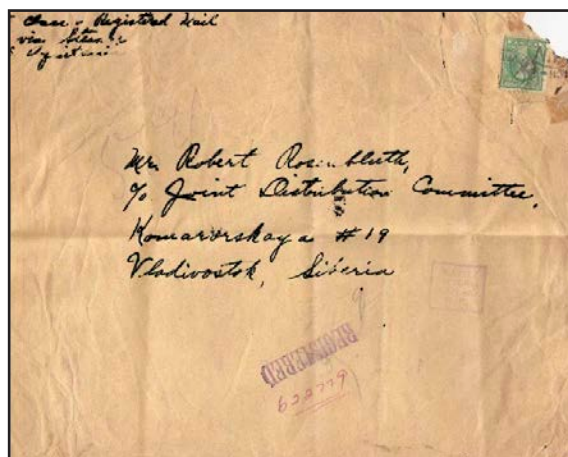 Class - Registered Mail
via
Mr. Robert Rosenbluth,
c/o Joint Distribution Committee,
Komarovskaya #19
Vladivostok, Siberia
REGISTERED
622779